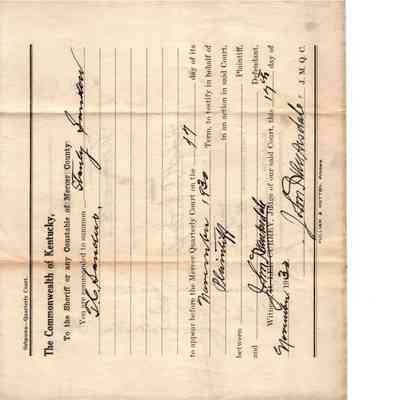 Subpoena—Quarterly Court.
The Commonwealth of Kentucky,
To the Sheriff or any Constable of Mercer County:
You are commanded to summon Stanly Sanders
T. C. Sanders,
to appear before the Mercer Quarterly Court on the 17 day of its
November 1930 Term, to testify in behalf of
Plaintiff in an action in said Court,
between Plaintiff,
and Defendant,
Witness, Judge of our said Court, this 17th day of
November 1930
J. M. Q. C.